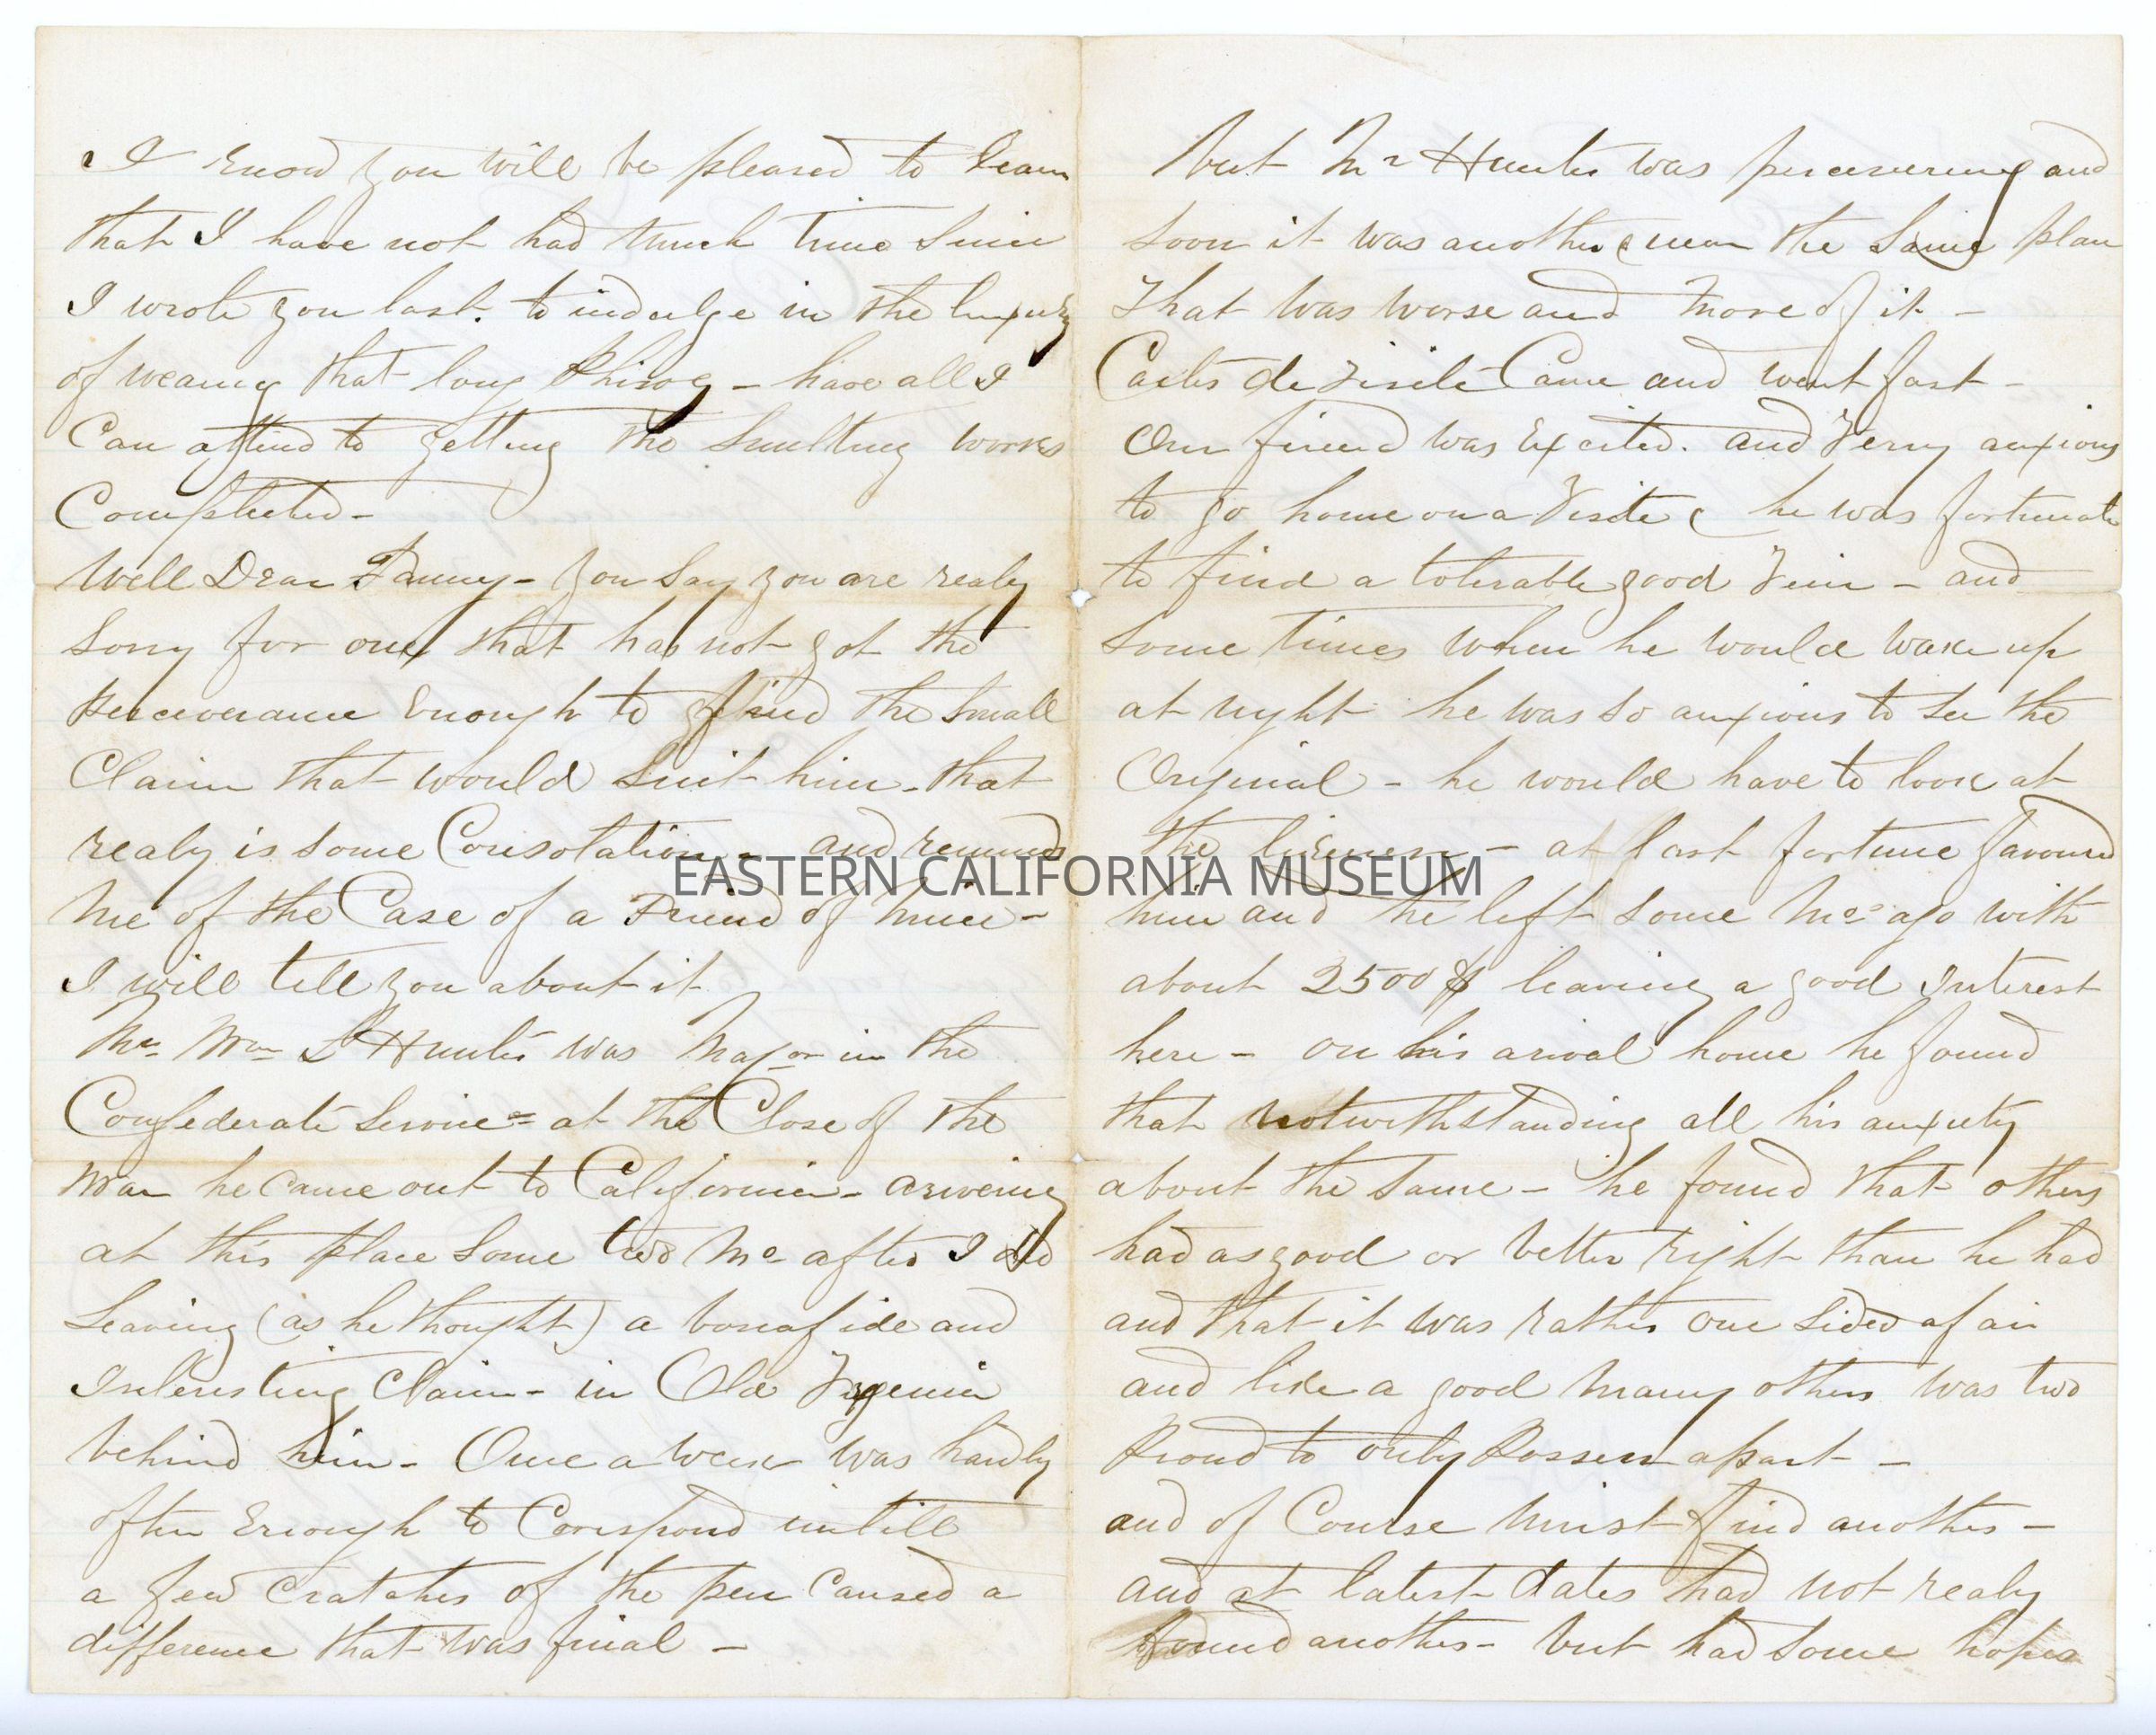 I know you will be pleased to learn
that I have not had much time since
I wrote you last. to indulge in the luxury
of wearing that long Phisog - have all I
Can attend to getting the Smelting works
Completed -
Well Dear Fanny - you Say you are realy
Sorry for one that has not got the
perceverance Enough to find the Small
Claim that would Suit him - that
realy is some Consolation - and reminds
me of the Case of a Friend of mine -
I will tell you about it
Mr. Wm L Hunter was Major in the
Confederate Service = at the Close of the
war he came out to California - ariveing
at this place Some two Mo after I did
Leaving (as he thought) a bonafide and
Interesting Claim - in Old Virginia
behind him - Once a week was hardly
often Enough to Corispond untill
a few cratches of the pen caused a
difference that was final -
but Mr Hunter was perceivering and
soon it was another & near the Same plan
that was worse and more of it -
Cartes de Visite Came and went fast -
Our friend was Excited. and Verry anxious
to go home on a Visite & he was fortunate
to find a tolerable good Vein - and
some times when he would wake up
at night he was so anxious to see the
Original - he would have to look at
the likeness - at last fortune favoured
him and he left some Mos ago with
about 2500 $ leaving a good Interest
here - on his arival home he found
that notwithstanding all his anxiety
about the same - he found that others
had as good or better right than he had
and that it was rather one sided afair
and like a good many others was two
Proud to only Possess apart -
and of Course must find another -
and at latest dates had not realy
found another - but had some hopes
EASTERN CALIFORNIA MUSEUM